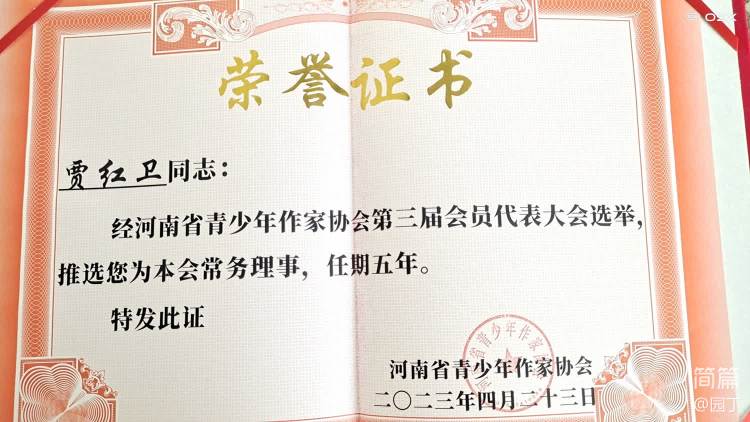 荣誉证书
贾红卫同志：
经河南省青少年作家协会第三届会员代表大会选举，
推选您为本会常务理事，任期五年。
特发此证
河南省青少年作家协会
二〇二三年四月二十三日
简篇
@园丁